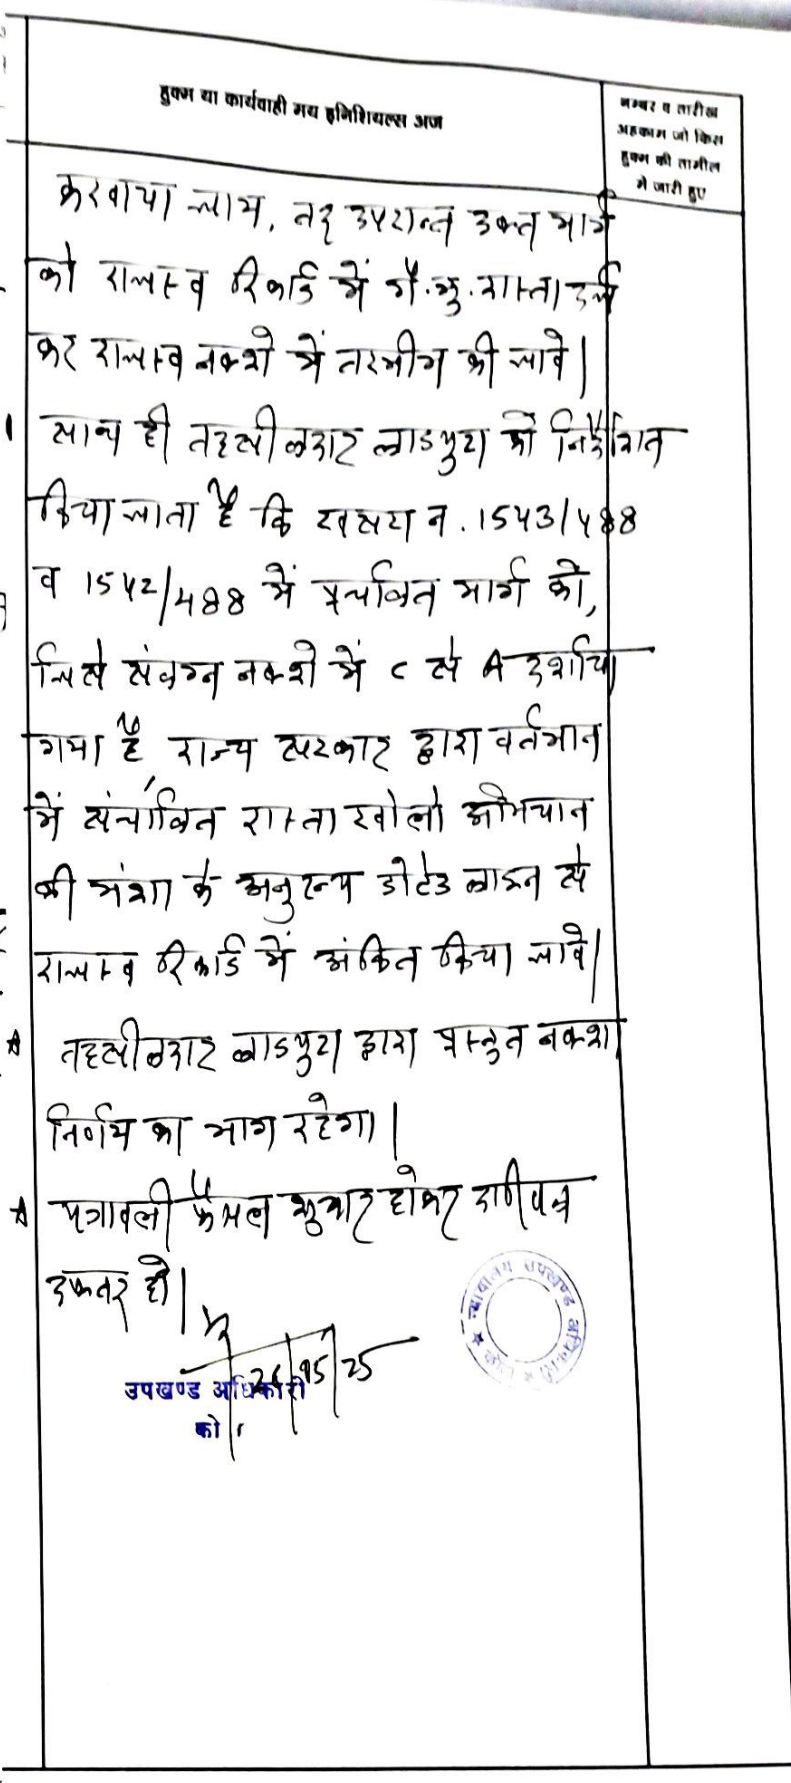 हुक्म या कार्यवाही मय इनिशियल्स अज
नम्बर व तारीख
अहकाम जो किस
हुक्म की तामील
में जारी हुए
करवाया जाय, तद् उपरान्त उक्त मार्ग
को राजस्व रिकार्ड में गै.मु. रास्ता दर्ज
कर राजस्व नक्शे में तरमीम की जावे।
साथ ही तहसीलदार लाडपुरा को निर्देशित
किया जाता है कि खसरा न. 1543/488
व 1542/488 में प्रचलित मार्ग को,
जिसे संलग्न नक्शे में C से A दर्शाया
गया है, राज्य सरकार द्वारा वर्तमान
में संचालित रास्ता खोलो अभियान
की मंशा के अनुरूप डोटेड लाइन से
राजस्व रिकार्ड में अंकित किया जावे।
तहसीलदार लाडपुरा द्वारा प्रस्तुत नक्शा
निर्णय का भाग रहेगा।
पत्रावली फैसल शुमार होकर दाखिल
दफ्तर हो।
25
उपखण्ड अधिकारी
को
न्यायालय उपखण्ड अधिकारी